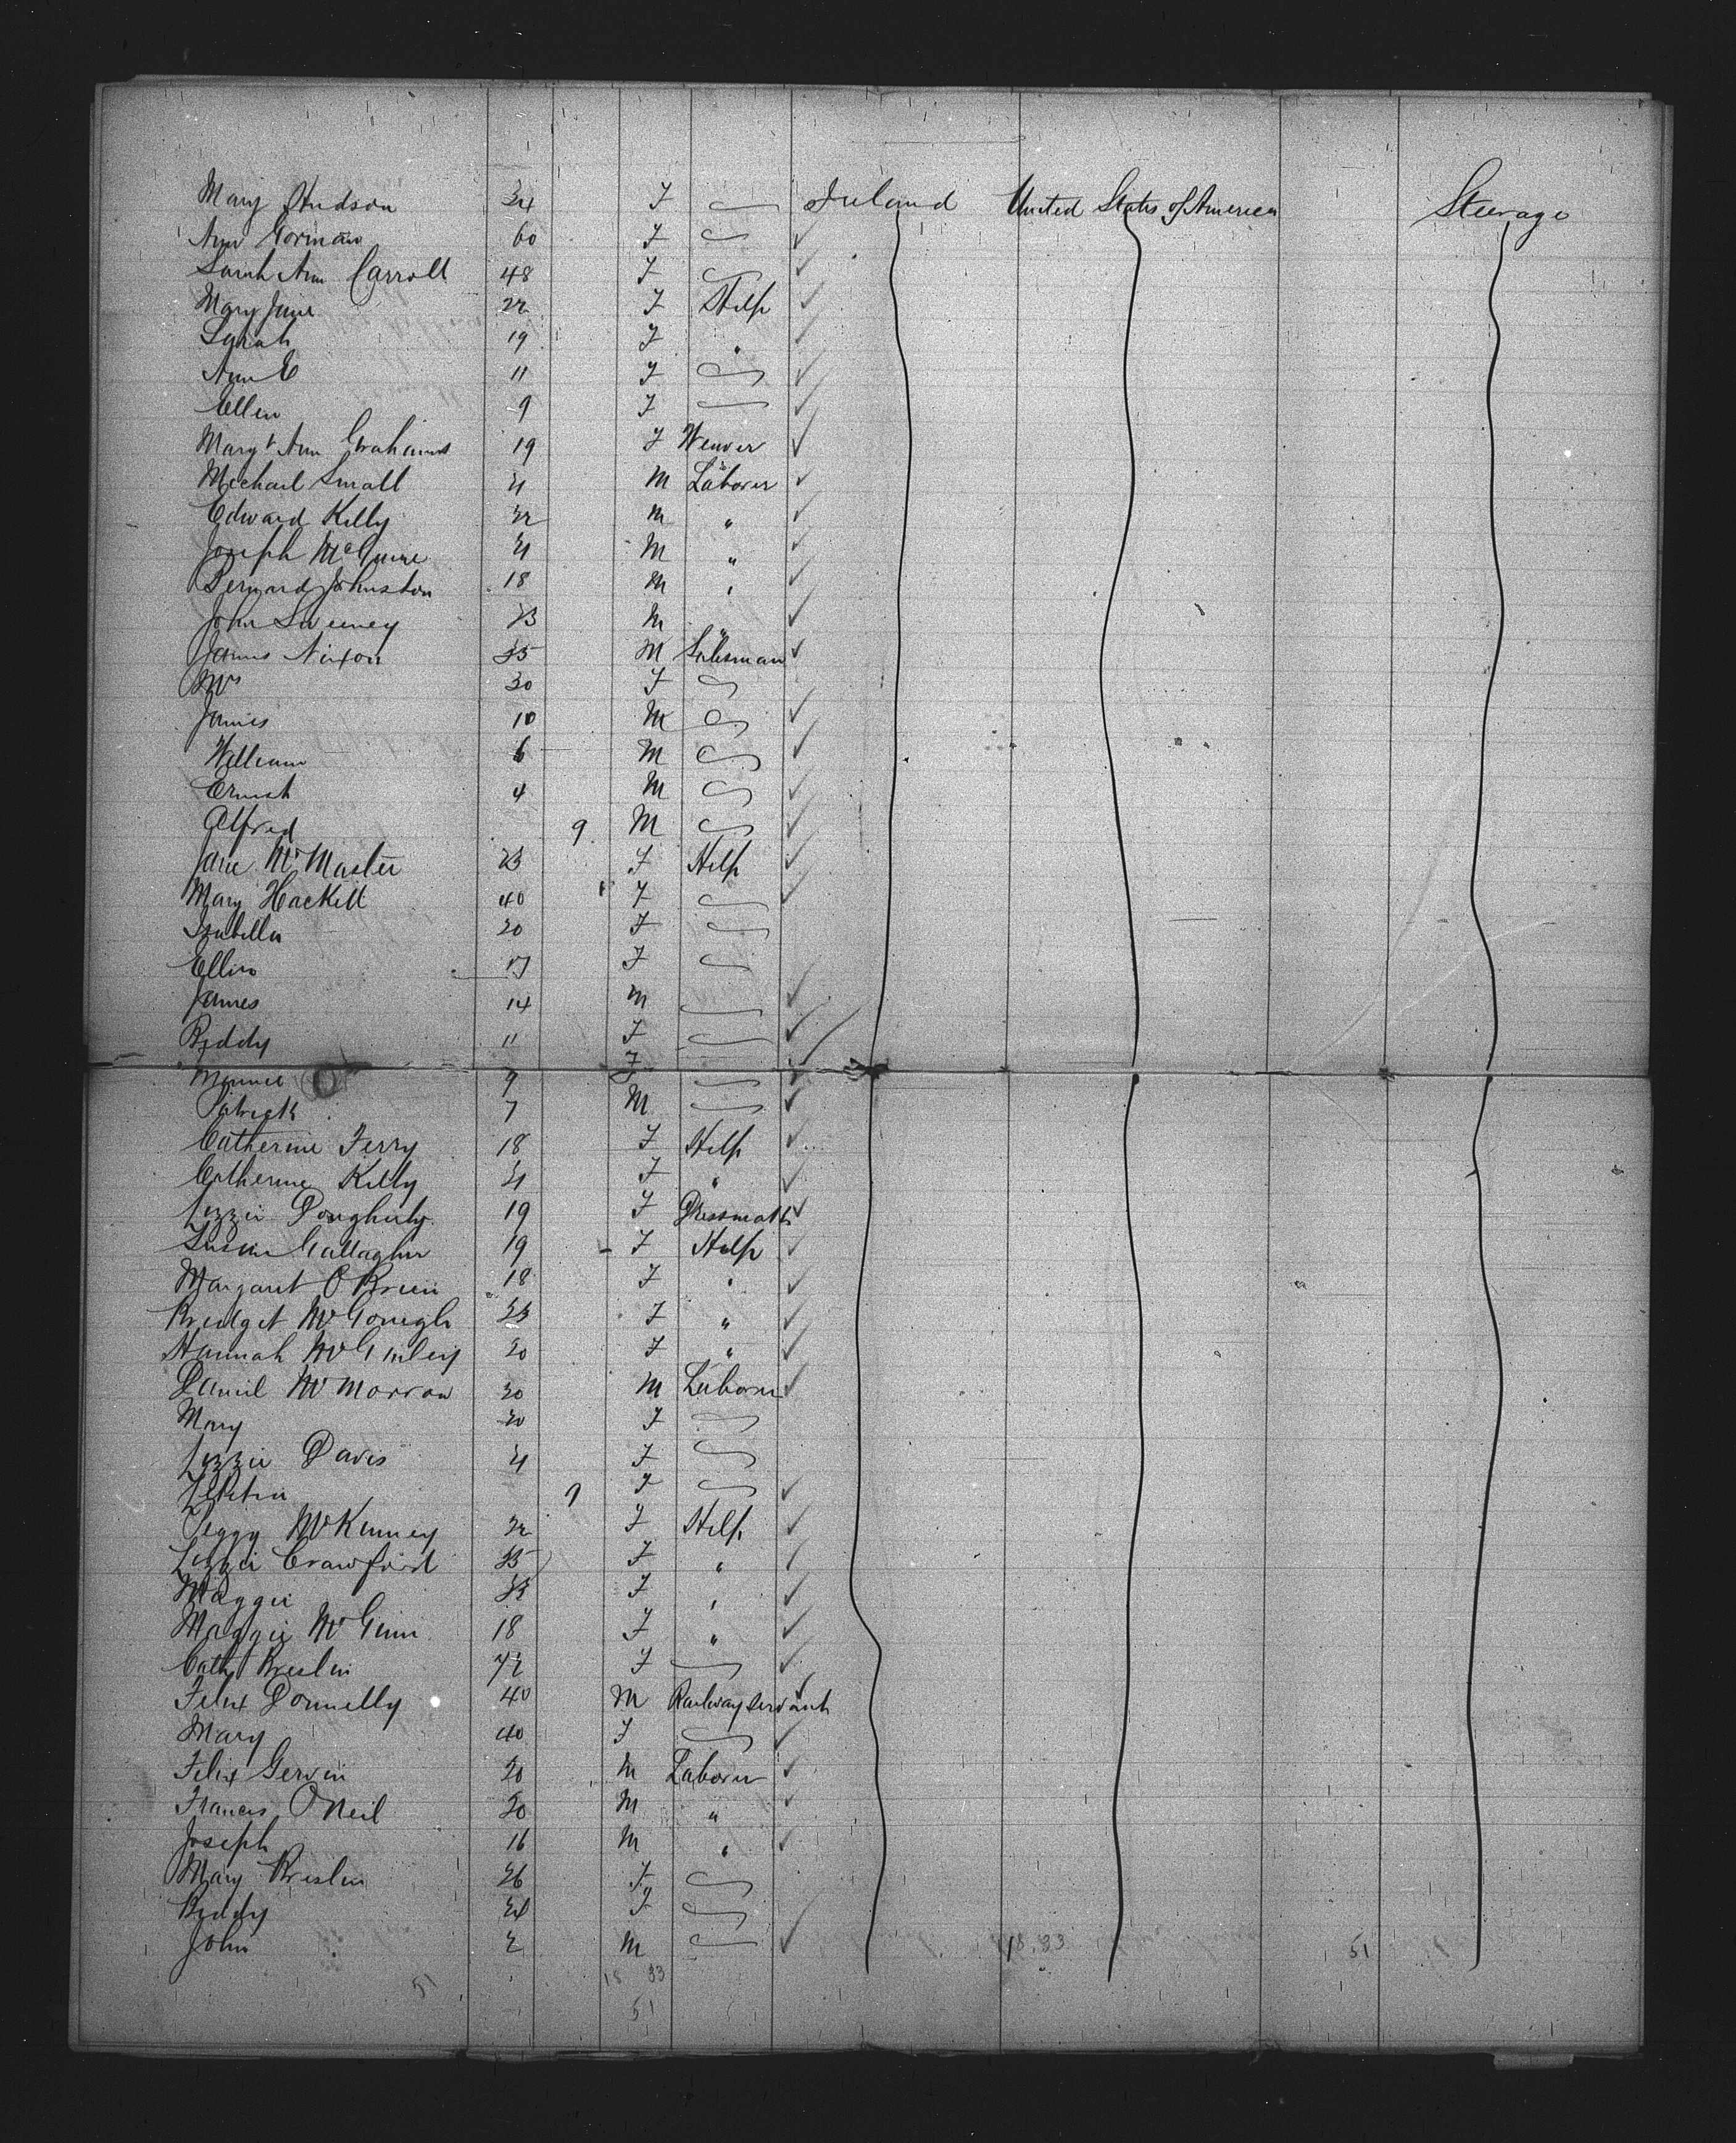 Mary Hudson 24 F Ireland United States of America Steerage
Ann Gorman 60 F
Sarah Ann Carroll 48 F
Mary Jane 22 F Help
Sarah 19 F "
Ann E 11 F
Ellen 9 F
Mary Ann Grahams 19 F Weaver
Michael Small 21 M Laborer
Edward Kelly 22 M "
Joseph McGuire 21 M "
Bernard Johnston 18 M "
John Sweeney 23 M "
James Nixon 35 M Salesman
Mrs 30 F
James 10 M
William 6 M
Ernest 4 M
Alfred 9 M
Jane McMaster 23 F Help
Mary Hackett 40 F
Isabella 20 F
Ellen 17 F
James 14 M
Biddy 11 F
Minnie 9 F
Patrick 7 M
Catherine Ferry 18 F Help
Catherine Kelly 21 F "
Lizzie Dougherty 19 F Dressmaker
Susan Gallagher 19 F Help
Margaret O'Brien 18 F "
Bridget McGonigle 23 F "
Hannah McGinley 20 F "
Daniel McMorrow 30 M Laborer
Mary 20 F
Lizzie Davis 21 F
9 F
Peggy McKinney 22 F Help
Lizzie Crawford 25 F "
Maggie F "
Maggie McGinn 18 F "
Cath Breslin 72 F
Felix Donnelly 40 M Railway servant
Mary 40 F
Felix Gervin 20 M Laborer
Francis O'Neil 20 M "
Joseph 16 M "
Mary Breslin 26 F
Biddy 24 F
John 2 M 18.33 51
51 18 33
51